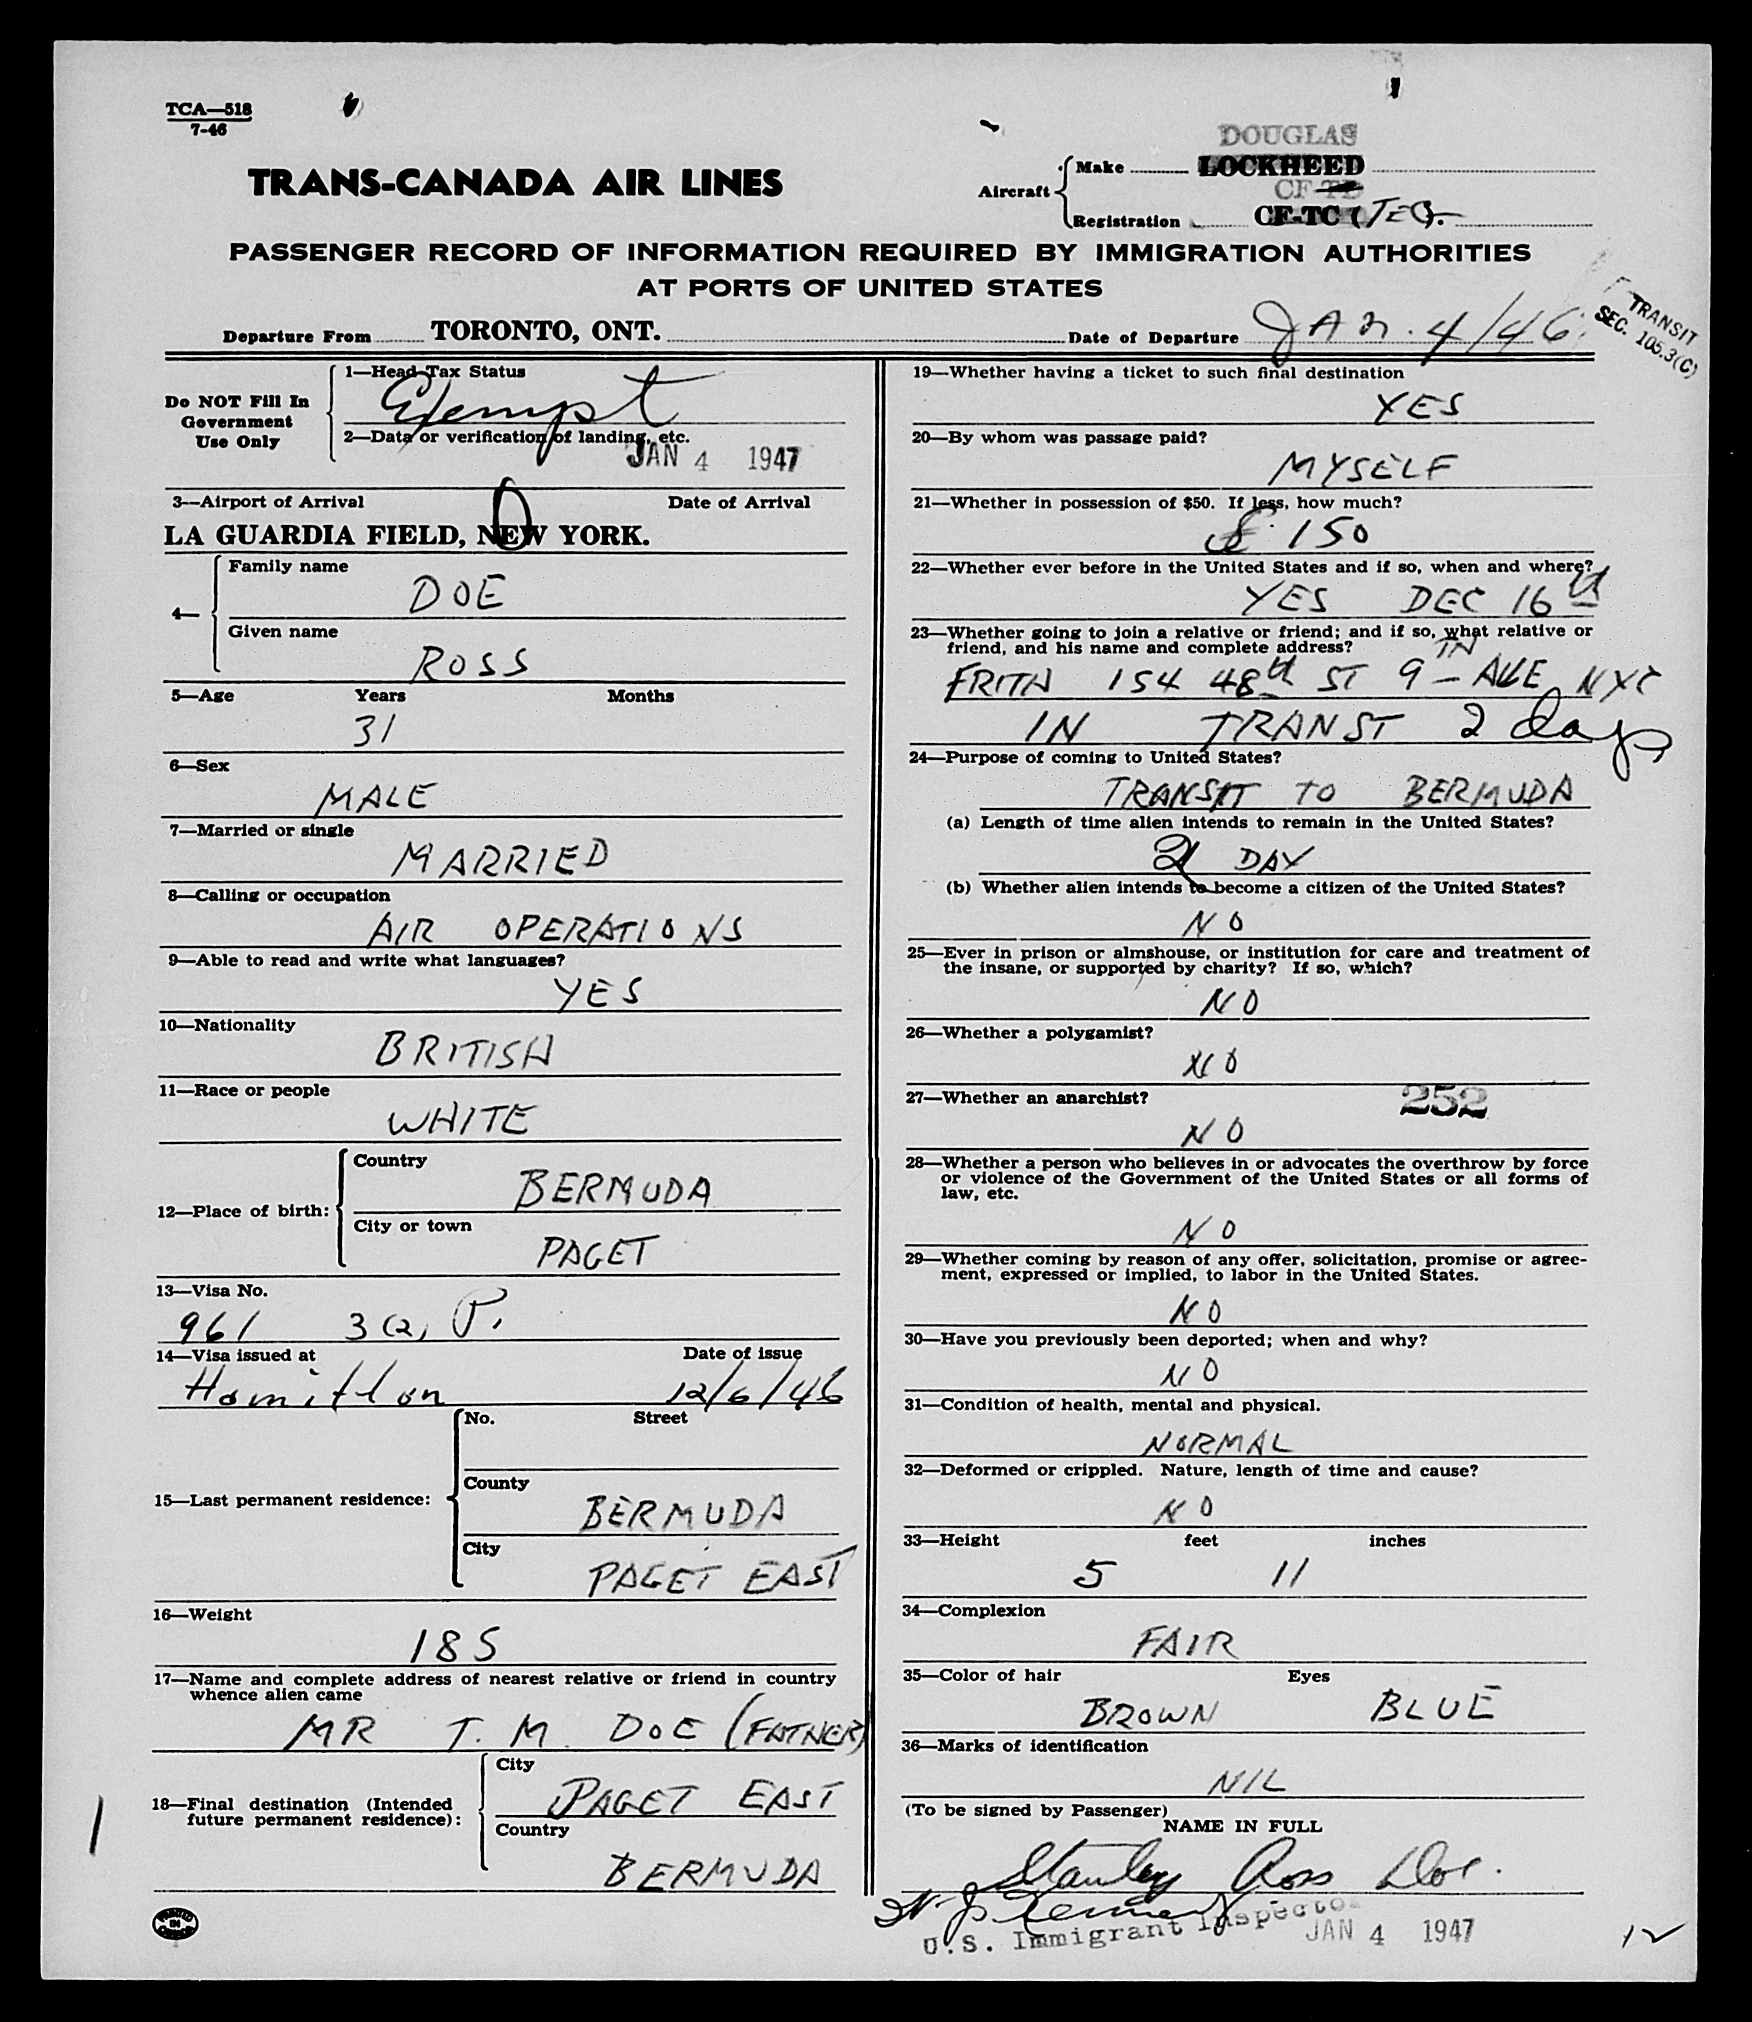 TCA—518
7-46
TRANS-CANADA AIR LINES
DOUGLAS
Aircraft
Make LOCKHEED
CF-TE
Registration CF-TC (TEC).
PASSENGER RECORD OF INFORMATION REQUIRED BY IMMIGRATION AUTHORITIES
AT PORTS OF UNITED STATES
TRANSIT
SEC. 105.3(C)
Departure From TORONTO, ONT. Date of Departure JAN. 4/46
Do NOT Fill In
Government
Use Only
1—Head Tax Status
Exempt
2—Data or verification of landing, etc.
JAN 4 1947
3—Airport of Arrival Date of Arrival
LA GUARDIA FIELD, NEW YORK.
4—
Family name
DOE
Given name
ROSS
5—Age Years Months
31
6—Sex
MALE
7—Married or single
MARRIED
8—Calling or occupation
AIR OPERATIONS
9—Able to read and write what languages?
YES
10—Nationality
BRITISH
11—Race or people
WHITE
12—Place of birth:
Country
BERMUDA
City or town
PAGET
13—Visa No.
961 3(2) P.
14—Visa issued at Date of issue
Hamilton 12/6/46
15—Last permanent residence:
No. Street
County
BERMUDA
City
PAGET EAST
16—Weight
185
17—Name and complete address of nearest relative or friend in country
whence alien came
MR T. M. DOE (FATHER)
18—Final destination (Intended
future permanent residence):
City
PAGET EAST
Country
BERMUDA
PRINTED IN CANADA
19—Whether having a ticket to such final destination
YES
20—By whom was passage paid?
MYSELF
21—Whether in possession of $50. If less, how much?
$ 150
22—Whether ever before in the United States and if so, when and where?
YES DEC 16th
23—Whether going to join a relative or friend; and if so, what relative or
friend, and his name and complete address?
FRITH 154 48th ST 9TH AVE NYC
IN TRANST 2 days
24—Purpose of coming to United States?
TRANSIT TO BERMUDA
(a) Length of time alien intends to remain in the United States?
2 DAY
(b) Whether alien intends to become a citizen of the United States?
NO
25—Ever in prison or almshouse, or institution for care and treatment of
the insane, or supported by charity? If so, which?
NO
26—Whether a polygamist?
NO
27—Whether an anarchist?
252
NO
28—Whether a person who believes in or advocates the overthrow by force
or violence of the Government of the United States or all forms of
law, etc.
NO
29—Whether coming by reason of any offer, solicitation, promise or agree-
ment, expressed or implied, to labor in the United States.
NO
30—Have you previously been deported; when and why?
NO
31—Condition of health, mental and physical.
NORMAL
32—Deformed or crippled. Nature, length of time and cause?
NO
33—Height feet inches
5 11
34—Complexion
FAIR
35—Color of hair Eyes
BROWN BLUE
36—Marks of identification
NIL
(To be signed by Passenger)
NAME IN FULL
Stanley Ross Doe.
U.S. Immigrant Inspector
JAN 4 1947